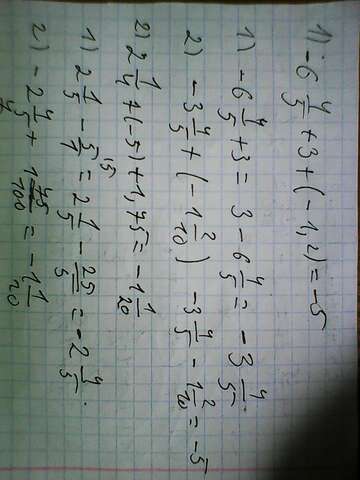 1) -6 4/5 + 3 + (-1,2) = -5
1) -6 4/5 + 3 = 3 - 6 4/5 = -3 4/5.
2) -3 4/5 + (-1 2/10) -3 4/5 - 1 2/10 = -5
2) 2 1/4 + (-5) + 1,75 = -1 1/20
1) 2 1/5 - 5/1 = 2 1/5 - 25/5 = -2 4/5.
2) -2 4/5 + 1 /100 = -1 1/20